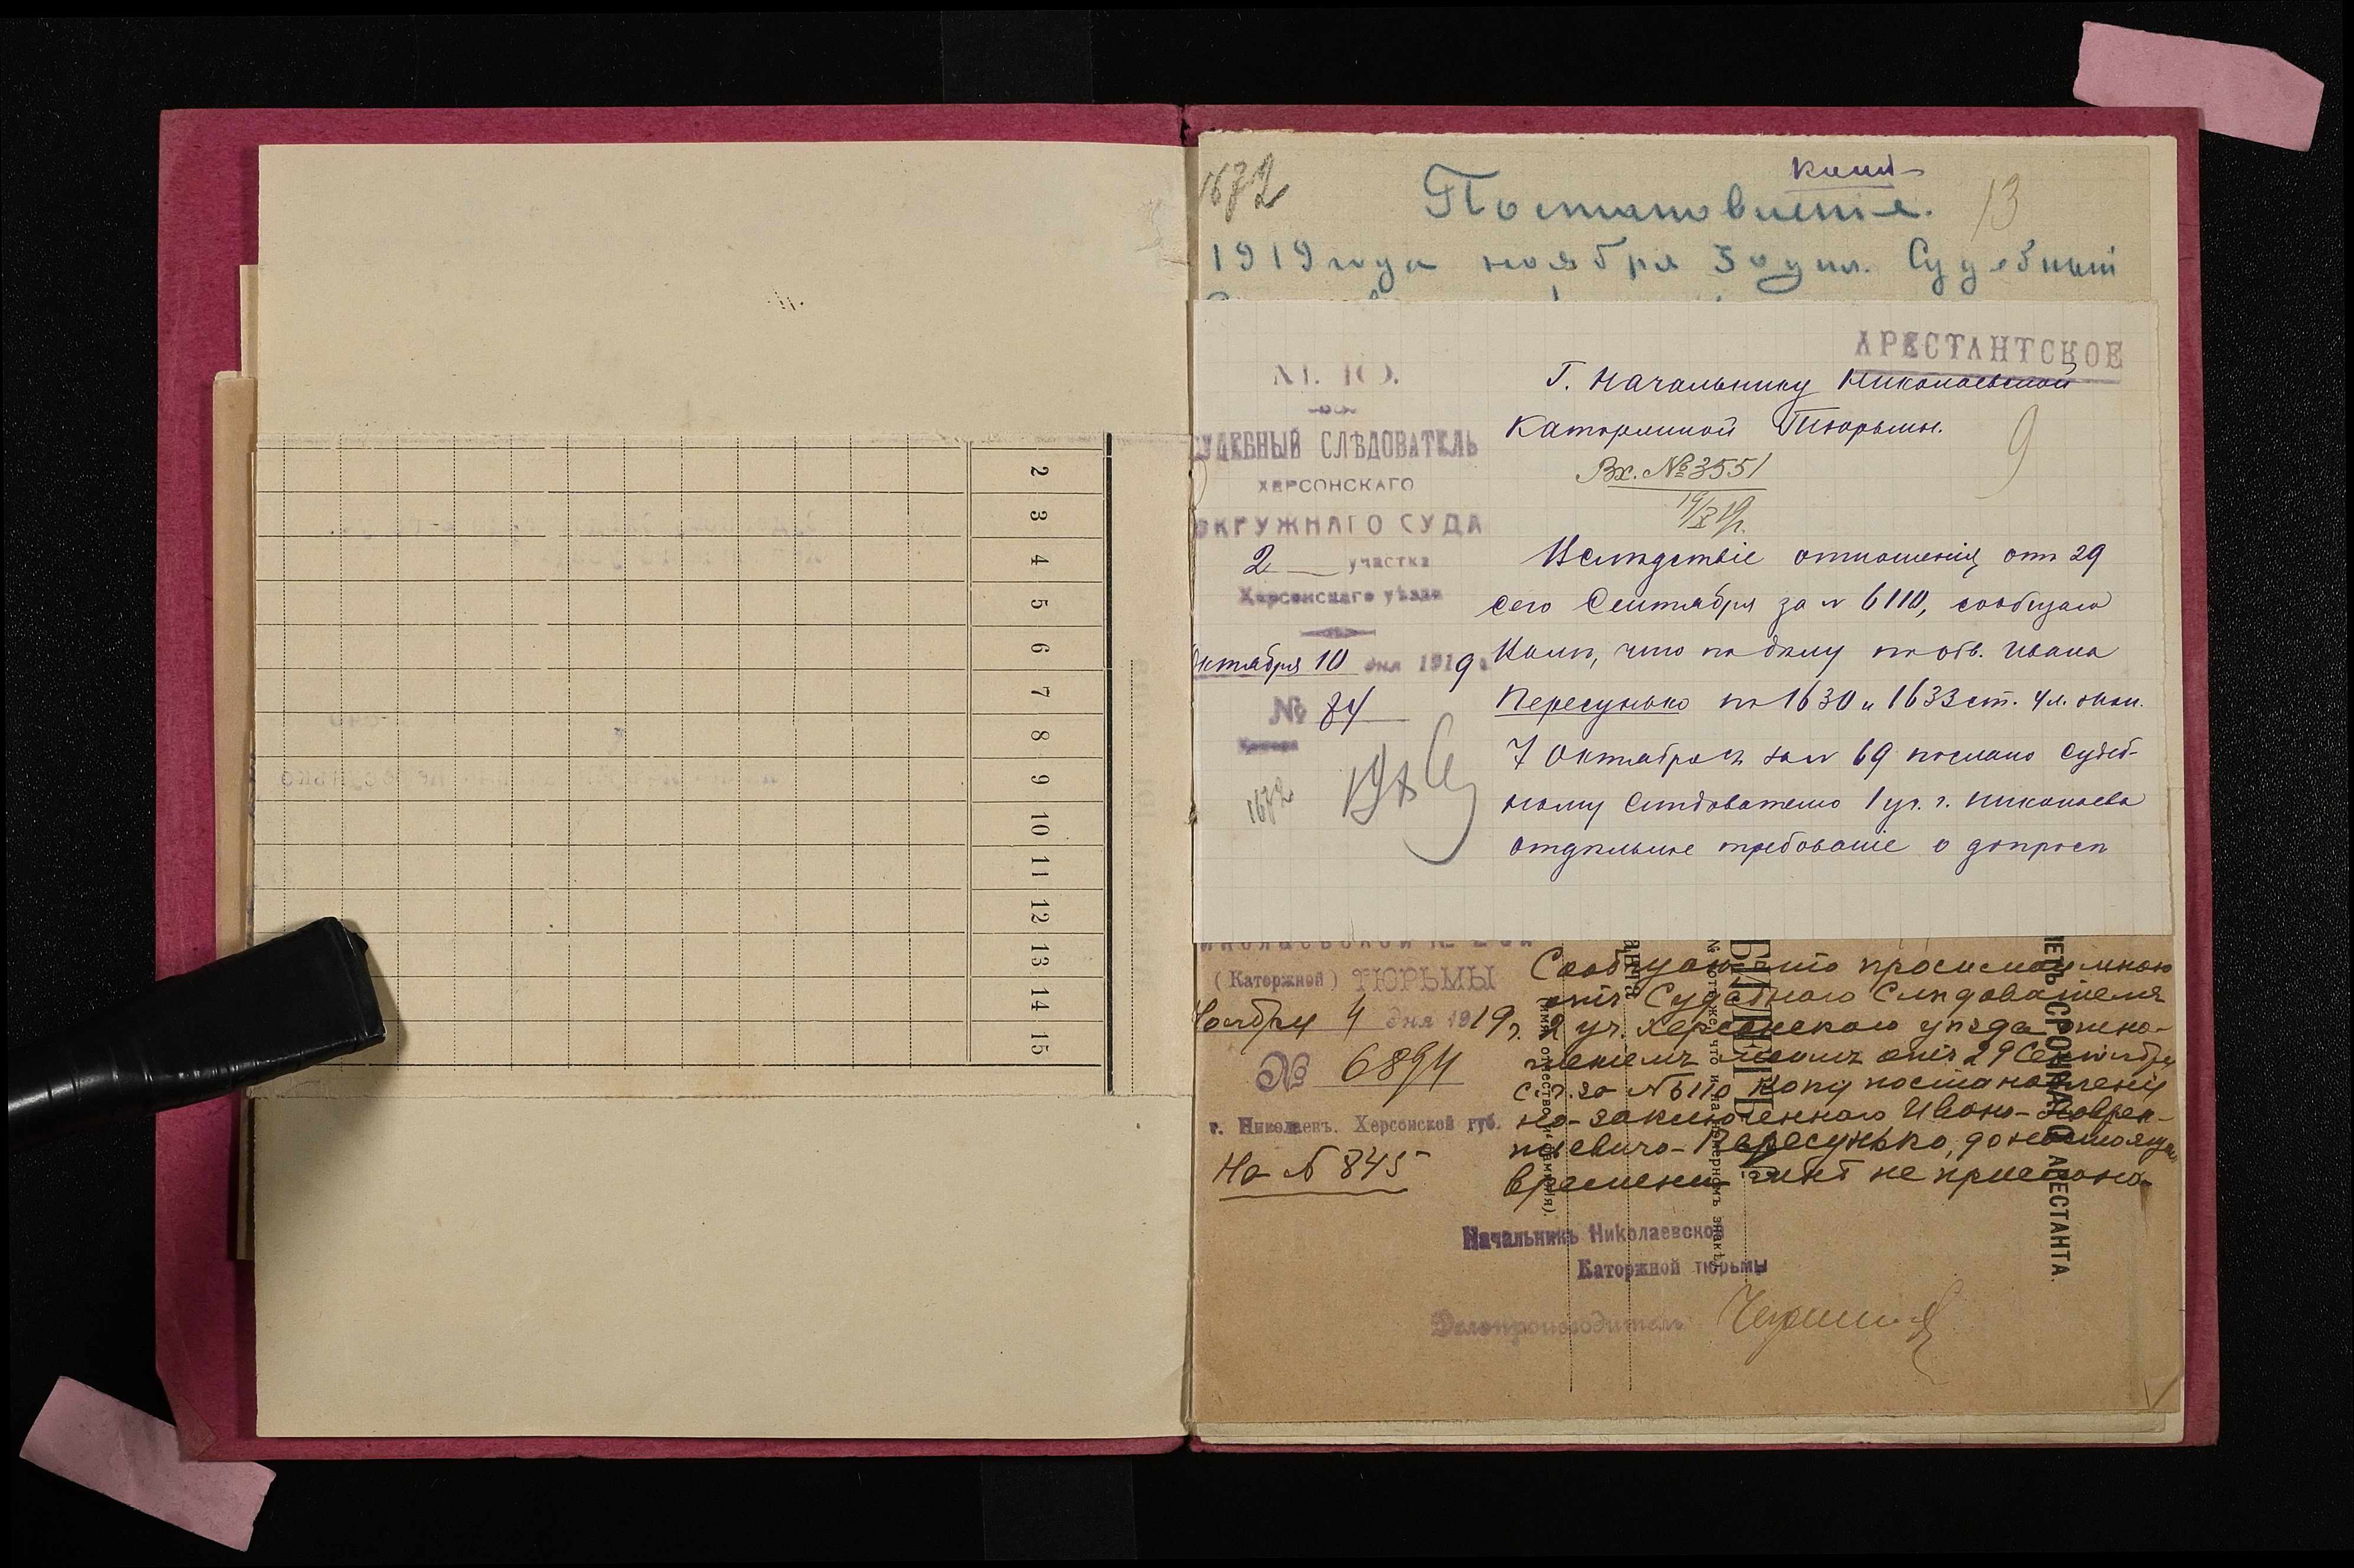 2
3
4
5
6
7
8
9
10
11
12
13
14
15
1672
копія
Постановленіе.
13
1919 года ноября 3 дня. Судебный
АРЕСТАНТСКОЕ
М. Ю.
СУДЕБНЫЙ СЛѢДОВАТЕЛЬ
ХЕРСОНСКАГО
ОКРУЖНАГО СУДА
2 участка
Херсонскаго уѣзда
Октября 10 дня 1919 г.
№ 74
1672
Г. Начальнику Николаевской
Каторжной Тюрьмы.
9
Вх. № 3551
Вслѣдствіе отношенія отъ 29
сего Сентября за № 6110, сообщаю
Вамъ, что по дѣлу по обв. Ивана
Пересунько по 1630 и 1633 ст. Ул. о нак.
7 Октября за № 69 послано Судеб-
ному Слѣдователю 1 уч. г. Николаева
отдѣльное требованіе о допросѣ
НИКОЛАЕВСКОЙ
(Каторжной) ТЮРЬМЫ
Ноября 4 дня 1919 г.
№ 6894
г. Николаевъ. Херсонской губ.
На № 845
Сообщаю, что просимая мною
отъ Судебнаго Слѣдователя
2 уч. Херсонскаго уѣзда отно-
шеніемъ моимъ отъ 29 Сентября
с.г. за № 6110 копія постановленія
на заключеннаго Ивана Лаврен-
тьевича Пересунько, до настоящаго
времени мнѣ не прислана.
Начальникъ Николаевской
Каторжной тюрьмы
Дѣлопроизводитель
БИЛЕТЪ
СРОЧНАГО АРЕСТАНТА.